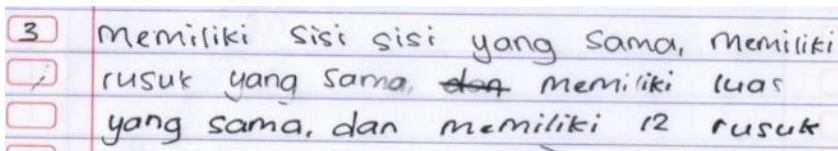 3 memiliki sisi sisi yang sama, memiliki
rusuk yang sama, dan memiliki luas
yang sama, dan memiliki 12 rusuk